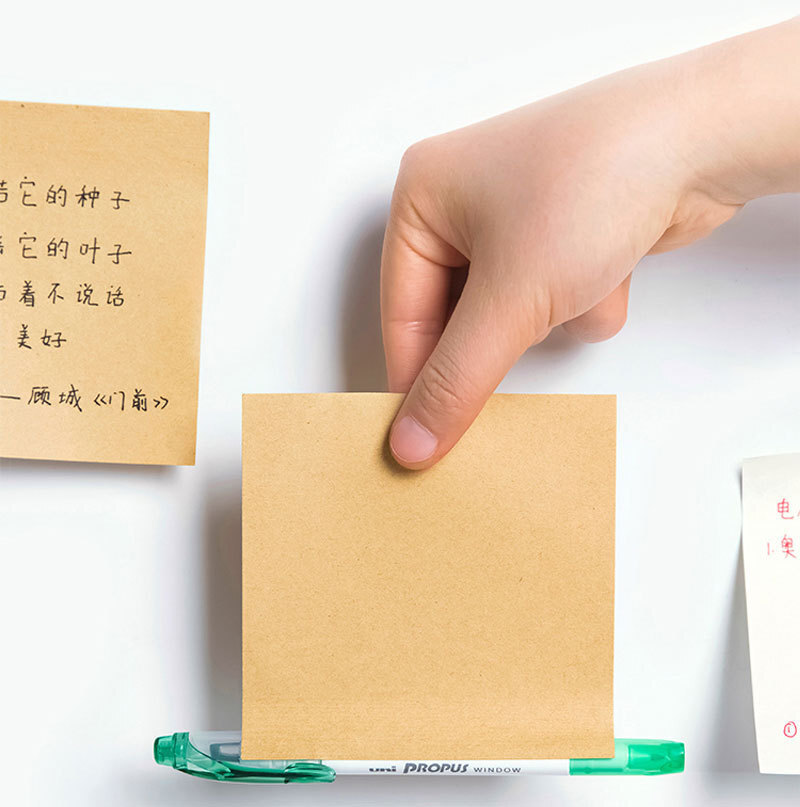 它的种子
它的叶子
着不说话
美好
— 顾城《门前》
电
1. 奥
①
uni PROPUS WINDOW